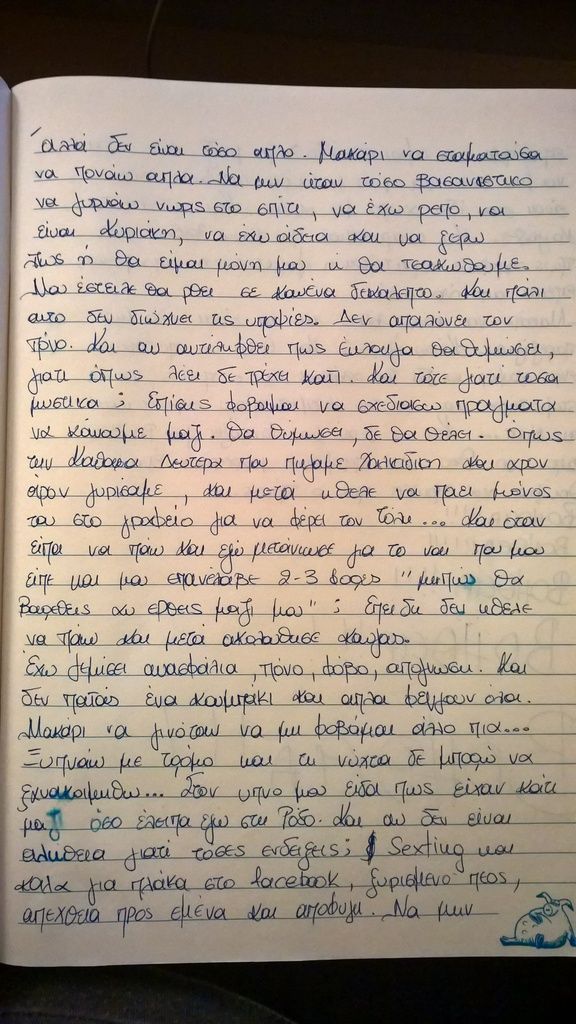 αλλά δεν είναι τόσο απλο. Μακάρι να σταματούσα
να πονάω απλα. Να μην ήταν τόσο βασανιστικο
να γυρνάω νωρις στο σπίτι, να έχω ρεπο, να
είναι Κυριακη, να εχω άδεια και να ξέρω
πως ή θα ειμαι μόνη μου ή θα τσακωθουμε.
Μου έστειλε θα ρθει σε κανένα δεκαλεπτο. Και πάλι
αυτο δεν διώχνει τις υποψίες. Δεν απαλύνει τον
πόνο. Και αν αντιληφθεί πως έκλαιγα θα θυμώσει,
γιατι όπως λέει δε τρέχει κατι. Και τότε γιατι τοσα
μυστικα; Επίσης φοβαμαι να σχεδιασω πραγματα
να κάνουμε μαζι. Θα θυμωσει, δε θα θέλει. Οπως
την Καθαρα Δευτερα που πηγαμε Χαλκιδικη και αρον
αρον γυρισαμε, και μετά ηθελε να παει μόνος
του στο γραφείο για να φέρει τον Τόλη... Και όταν
είπα να πάω και εγω μετάνιωσε για το ναι που μου
είπε και μου επανέλαβε 2-3 φορες "μηπως θα
βαρεθεις αν ερθεις μαζι μου"; Επειδη δεν ηθελε
να πάω και μετά ακολούθησε καυγας.
Εχω γεμισει ανασφάλια, πόνο, φόβο, απόγνωση. Και
δεν πατάς ένα κουμπακι και απλα φεύγουν ολα.
Μακάρι να γινόταν να μη φοβάμαι άλλο πια...
Ξυπνάω με τρόμο και τη νύχτα δε μπορώ να
ξανακοιμηθω... Στον υπνο μου είδα πως είχαν κάτι
μαζι όσο έλειπα εγω στη Ρόδο. Και αν δεν είναι
αλήθεια γιατι τόσες ενδείξεις; Sexting και
καλα για πλάκα στο facebook, ξυρισμενο πεος,
απεχθεια προς εμένα και αποφυγη. Να μην